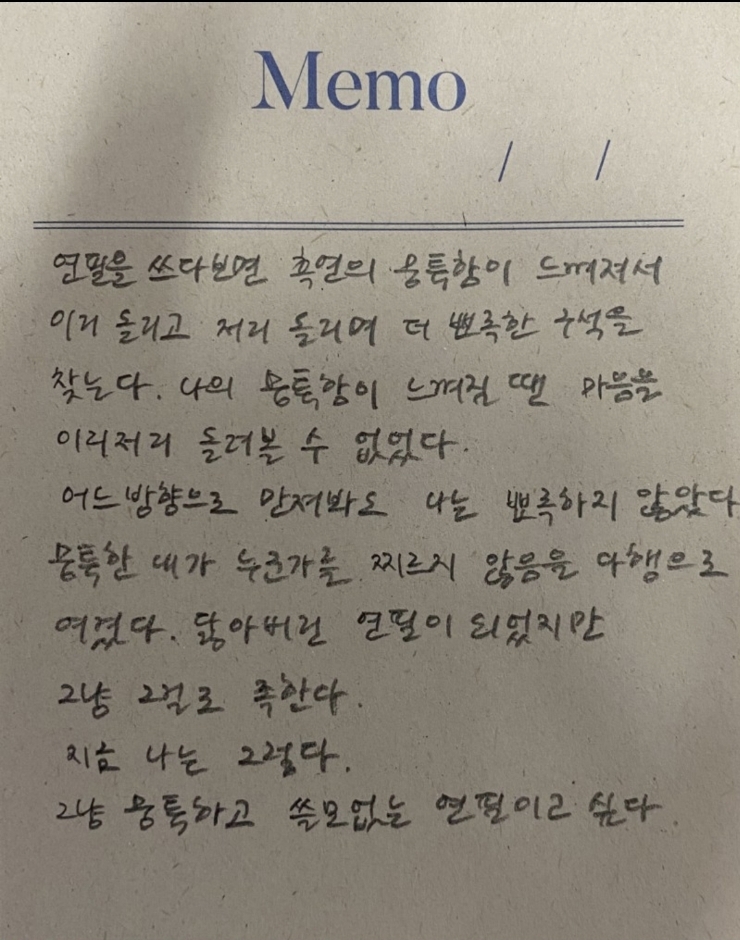 Memo
/ /
연필을 쓰다보면 흑연의 뭉툭함이 느껴져서
이리 돌리고 저리 돌리며 더 뾰족한 구석을
찾는다. 나의 뭉툭함이 느껴질 땐 마음을
이리저리 돌려볼 수 없었다.
어느방향으로 만져봐도 나는 뾰족하지 않았다
뭉툭한 내가 누군가를 찌르지 않음을 다행으로
여겼다. 닳아버린 연필이 되었지만
그냥 그걸로 족한다.
지금 나는 그렇다.
그냥 뭉툭하고 쓸모없는 연필이고 싶다.